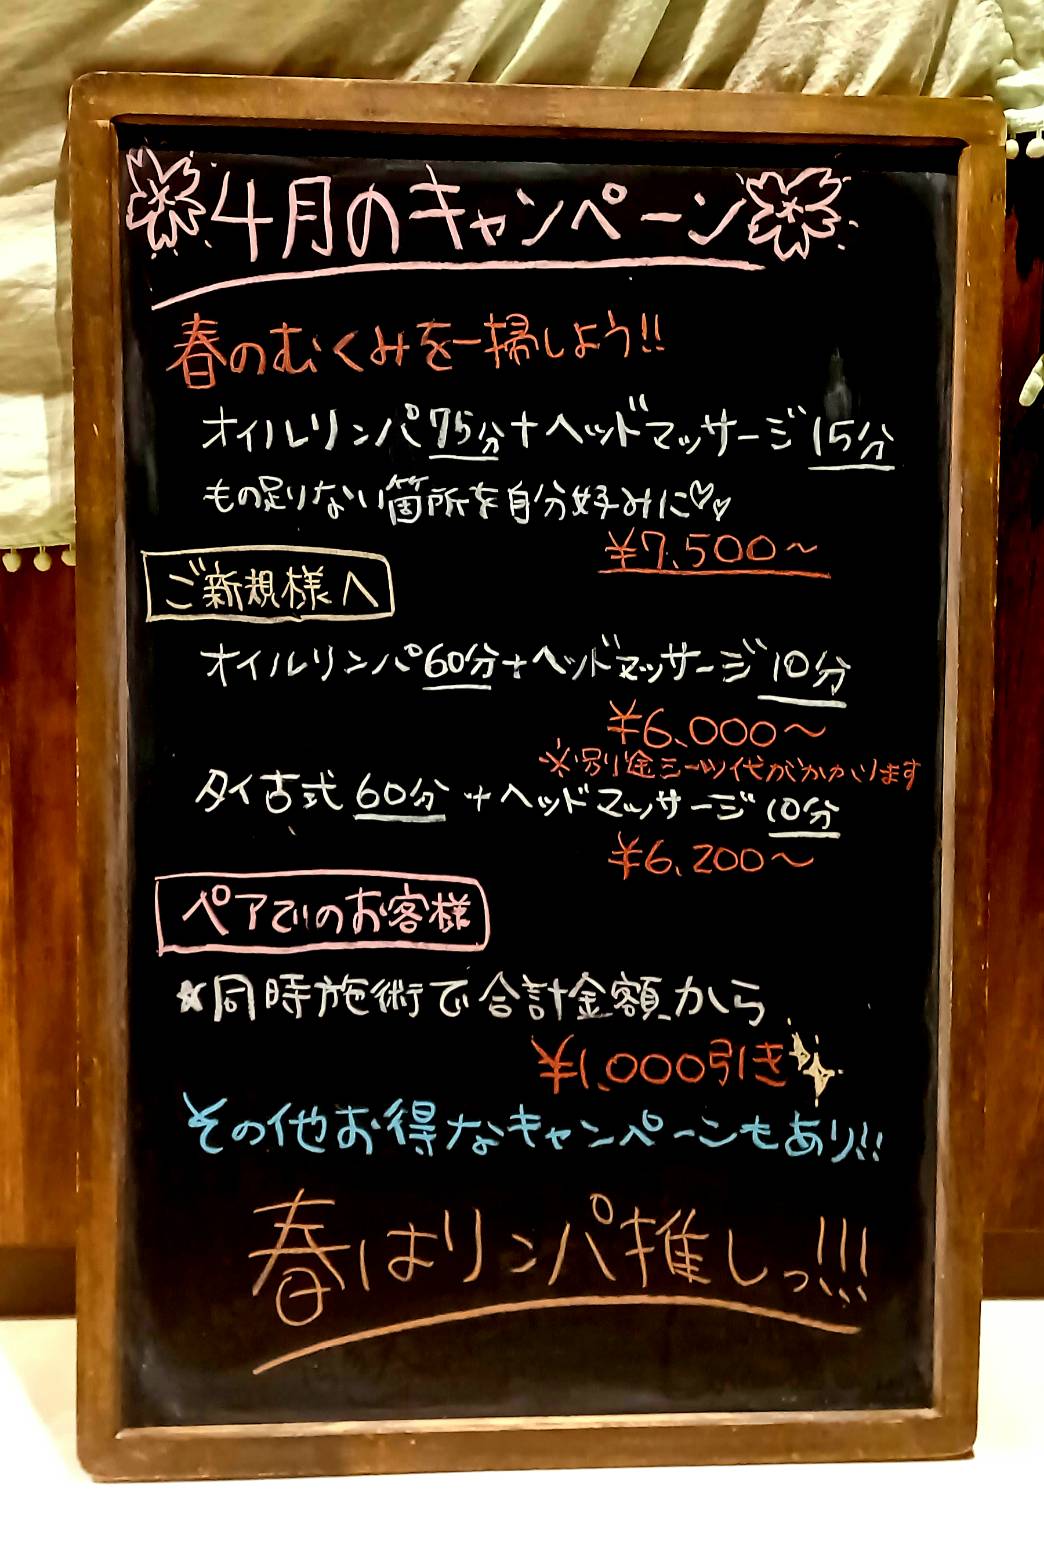 4月のキャンペーン
春のむくみを一掃しよう!!
オイルリンパ75分+ヘッドマッサージ15分
もの足りない箇所を自分好みに♡♡
¥7,500〜
ご新規様へ
オイルリンパ60分+ヘッドマッサージ10分
¥6,000〜
※別途シーツ代がかかります
タイ古式60分+ヘッドマッサージ10分
¥6,200〜
ペアでのお客様
★同時施術で合計金額から
¥1,000引き
その他お得なキャンペーンもあり!!
春はリンパ推しっ!!!